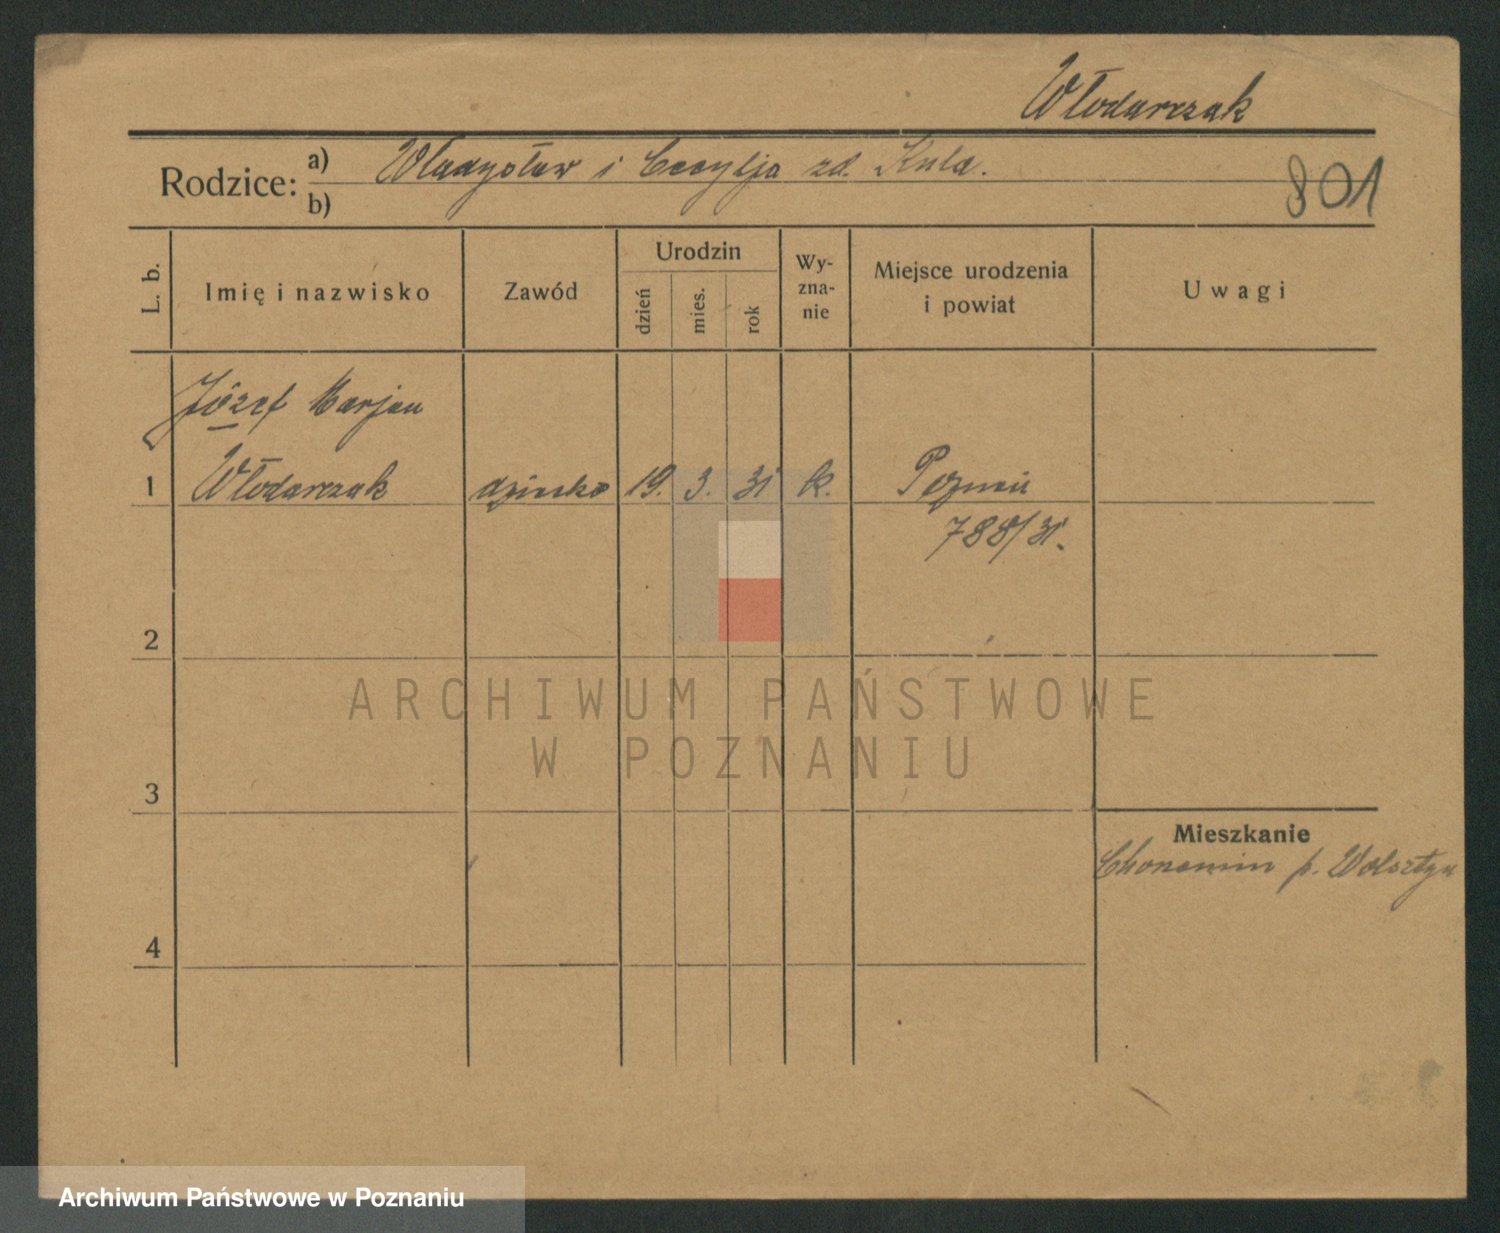 Włodarczak
Rodzice: a) Władysław i Cecylja zd. Kula.
b)
801
L. b.
Imię i nazwisko
Zawód
Urodzin
dzień
mies.
rok
Wy-
zna-
nie
Miejsce urodzenia
i powiat
Uwagi
Józef Marjan
1 Włodarczak dziecko 19. 3. 31 k. Poznań
788/31.
2
ARCHIWUM PAŃSTWOWE
W POZNANIU
3
Mieszkanie
p. Wolsztyn
4
Archiwum Państwowe w Poznaniu